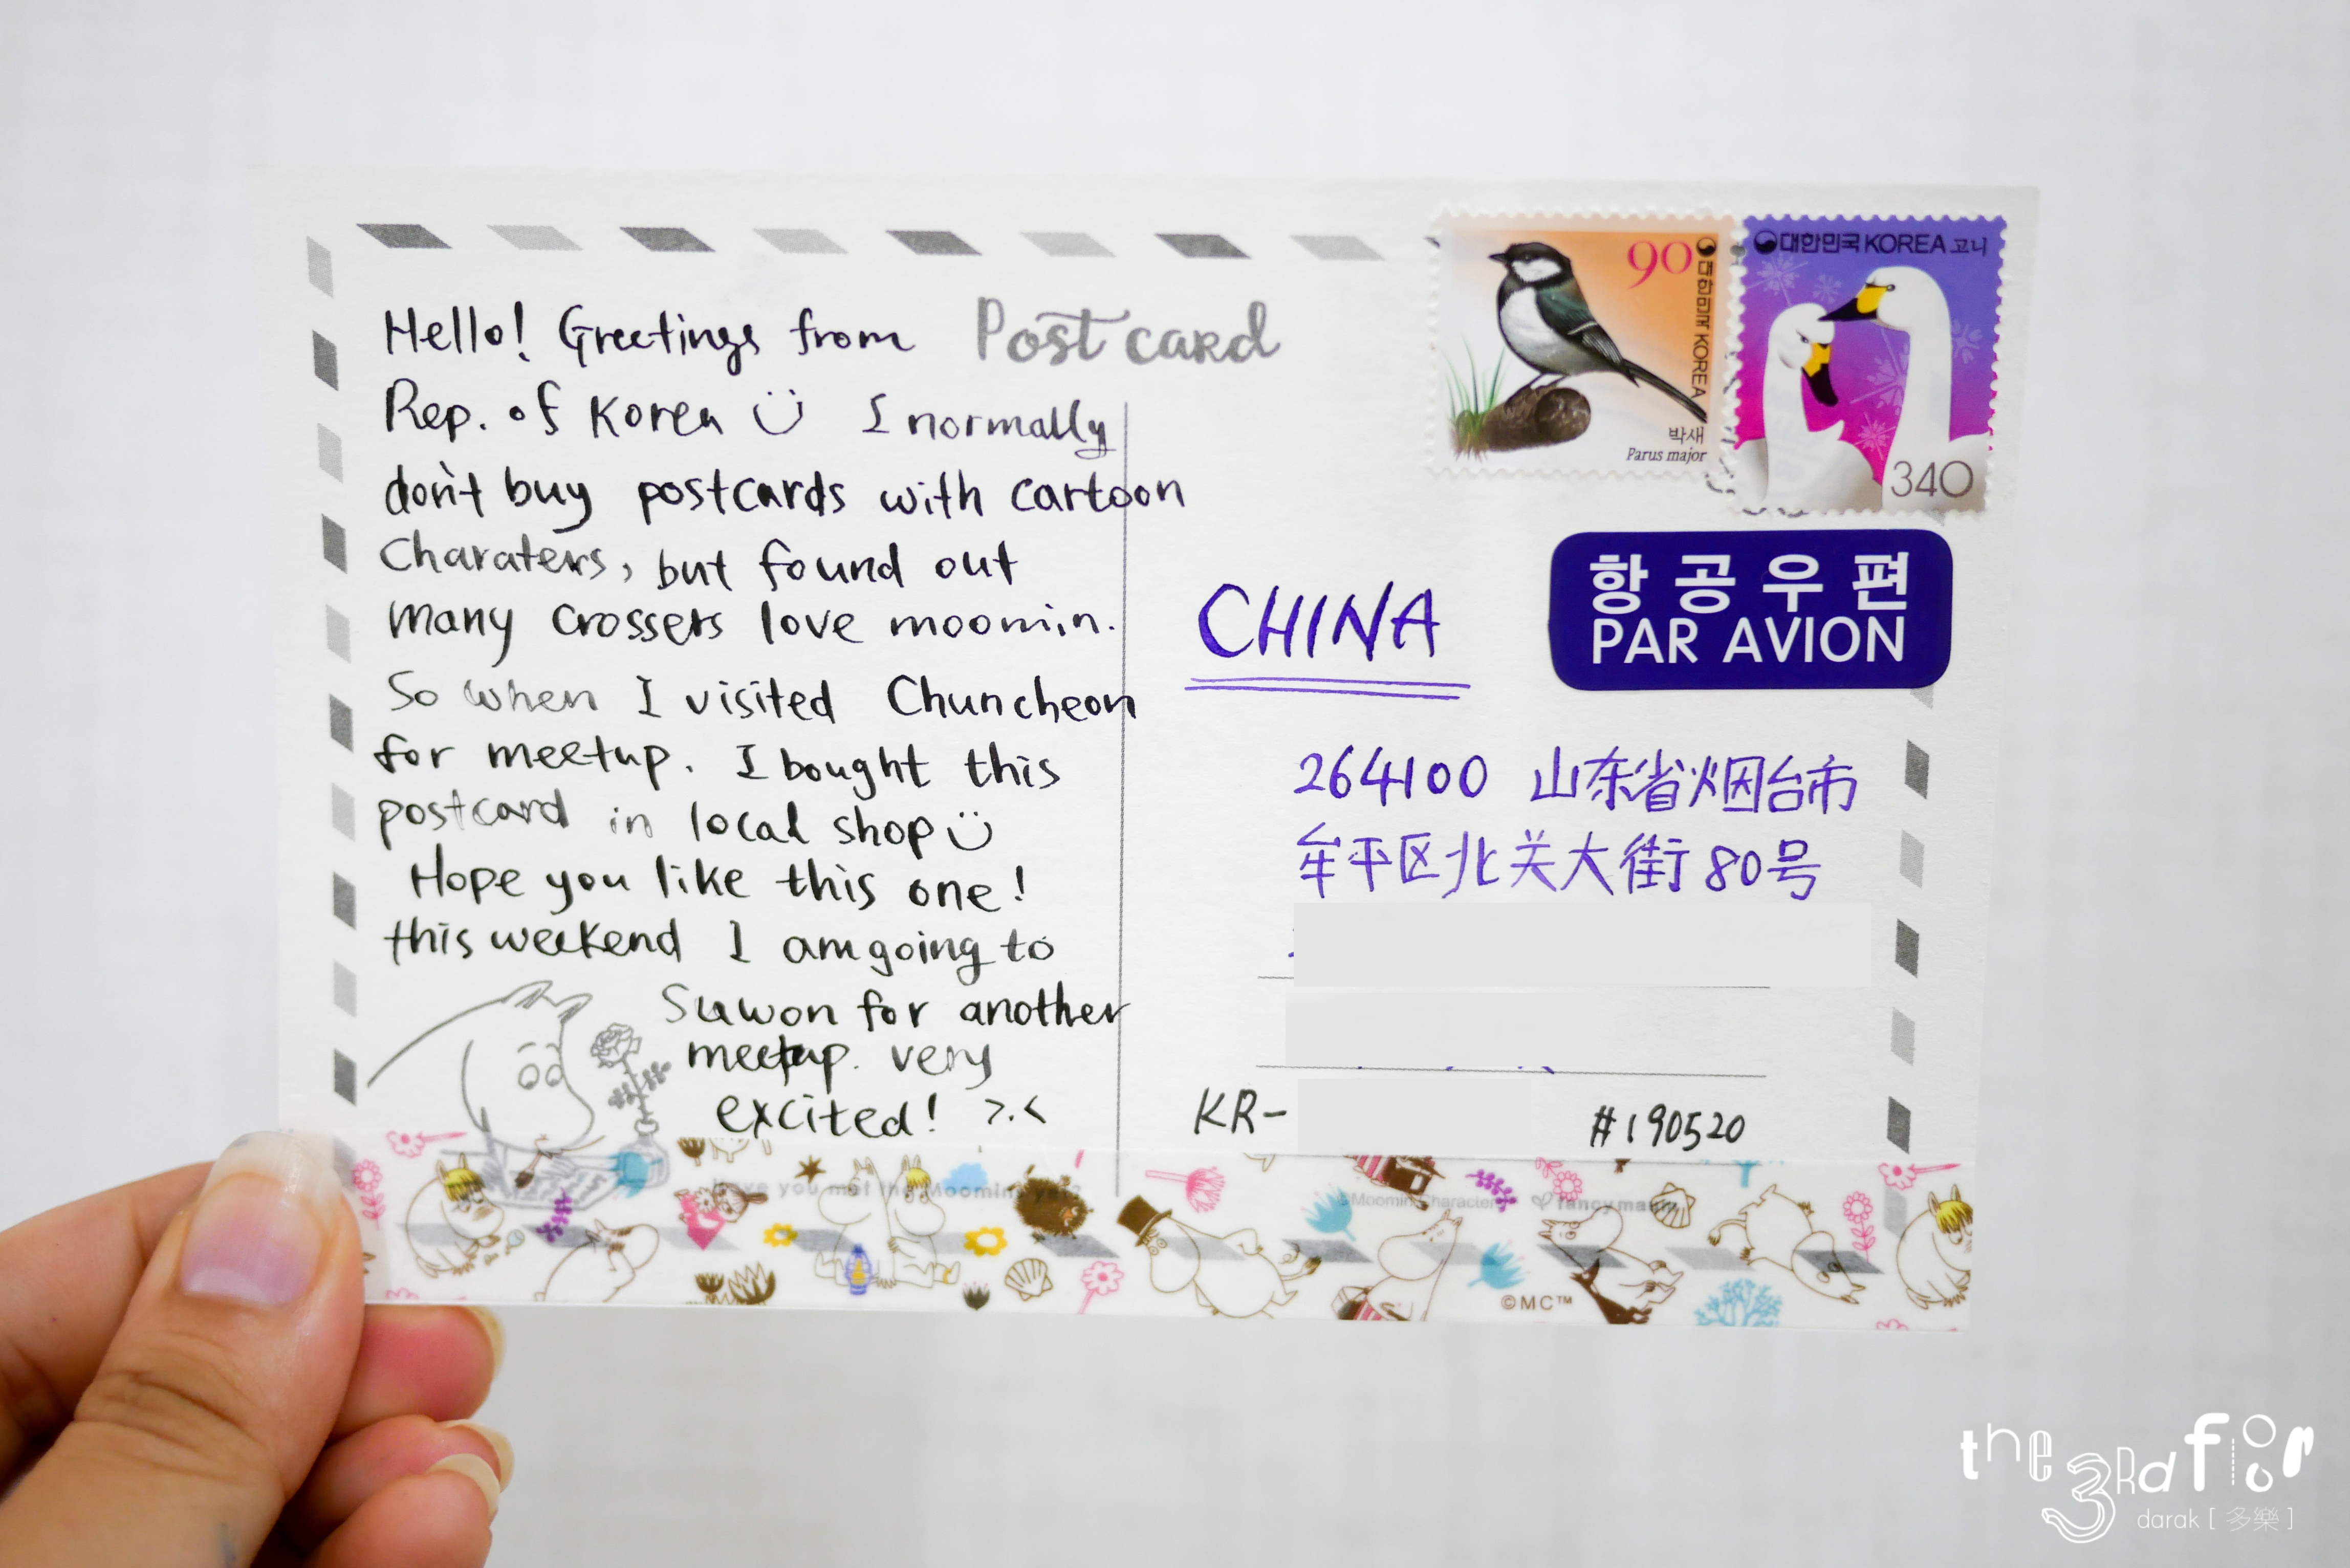 Hello! Greetings from
Post card
Rep. of Korea I normally
don't buy postcards with cartoon
Charaters, but found out
many crossers love moomin.
So when I visited Chuncheon
for meetup. I bought this
postcard in local shop
Hope you like this one!
this weekend I am going to
Suwon for another
meetup. very
excited! >.<
90
대한민국 KOREA
박새
Parus major
대한민국 KOREA 고니
340
항공우편
PAR AVION
CHINA
264100 山东省烟台市
牟平区北关大街80号
KR-
#190520
Have you met the Moomins yet?
©Moomin Characters
fancymann
©MC™
the 3rd floor
darak [多樂]